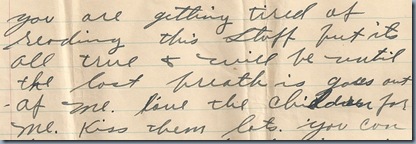 you are getting tired of
reading this stuff but its
all true & will be until
the last breath is goes out
of me. love the children for
me. Kiss them lots. you can